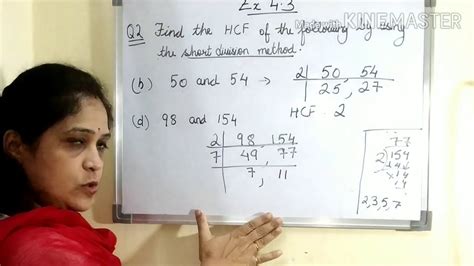 Ex 4.3
Q2 Find the HCF of the following by using
the short division method.
(b) 50 and 54 → 2 50, 54
25, 27
HCF = 2
(d) 98 and 154
2 98, 154
7 49, 77
7, 11
77
2 154
14↓
×14
14
2,3,5,7
KINEMASTER